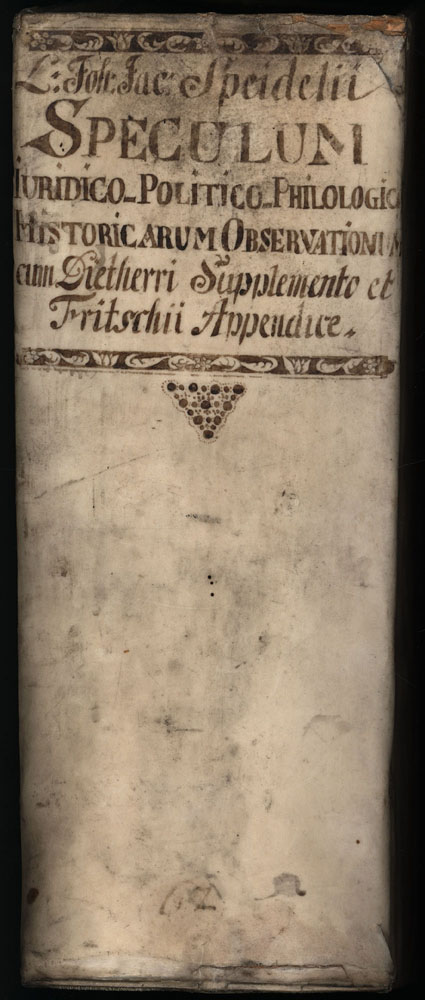 L: Joh: Jac: Speidelii
SPECULUM
IURIDICO-POLITICO-PHILOLOGIC
HISTORICARUM OBSERVATIONUM
cum Dietherri Supplemento et
Fritschii Appendice.